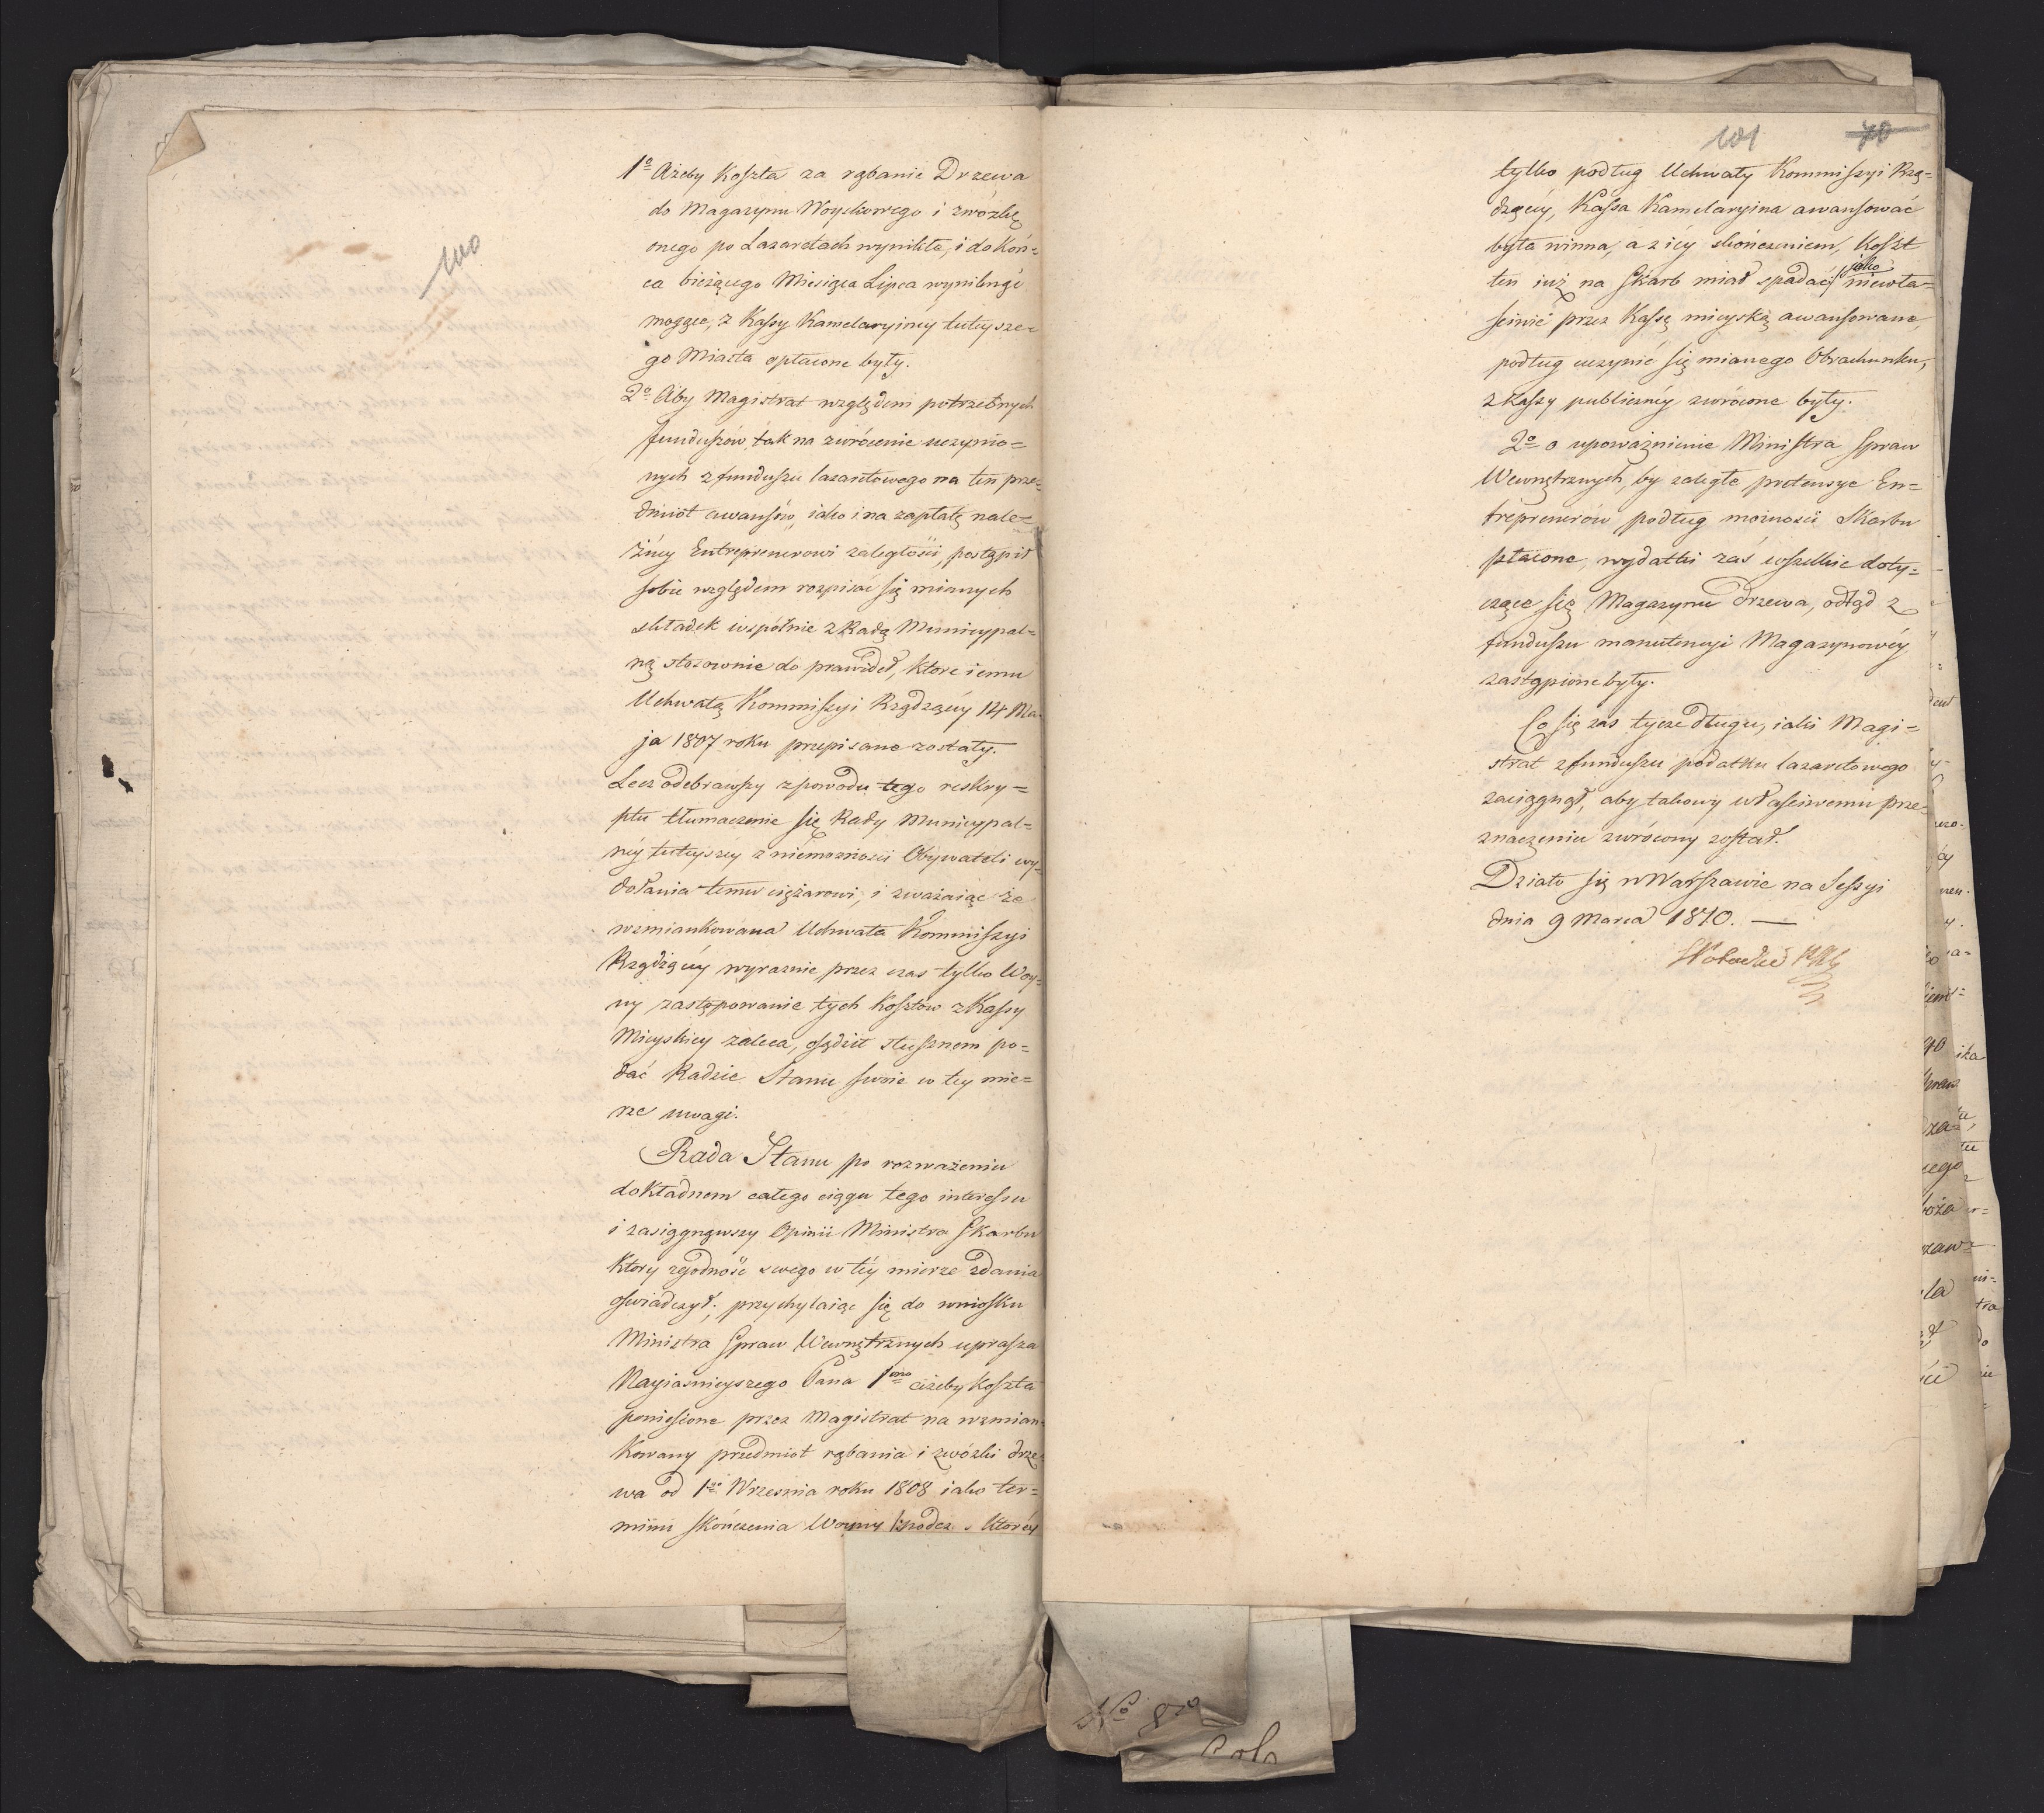 100
1o Ażeby Koszta za rąbanie Drzewa
do Magazynu Woyskowego i zwózkę
onego po Lazaretach wynikłe, i do Koń=
ca bieżącego Miesiąca Lipca wyniknąć
mogące, z Kassy Kamelaryiney tuteysze=
go Miasta opłacone były.
2o Aby Magistrat względem potrzebnych
funduszów tak na zwrócenie uczynio=
nych z funduszu lazaretowego na ten prze=
dmiot awansów, iako i na zapłatę nale=
żney Entreprenerowi zaległości, postąpił
sobie względem rozpisać się mianych
składek wspólnie z Radą Municypal=
ną stosownie do prawideł, które iemu
Uchwałą Kommissyi Rządzącey 14 Ma=
ja 1807 roku przepisane zostały.
Lecz odebrawszy z powodu tego reskry=
ptu tłumaczenie się Rady Municypal=
ney tuteyszey z niemożności Obywateli wy=
dołania temu ciężarowi, i zważaiąc że
wzmiankowana Uchwała Kommissyi
Rządzącey wyraznie przez czas tylko Woy=
ny zastępowanie tych Kosztów z Kassy
Mieyskiey zaleca, osądził słusznem po=
dać Radzie Stanu swoie w tey mie=
rze uwagi.
Rada Stanu po rozważeniu
dokładnem całego ciągu tego interessu
i zasiągnąwszy Opinii Ministra Skarbu
który zgodność swego w téy mierze zdania
oświadczył; przychylaiąc się do wniosku
Ministra Spraw Wewnętrznych uprasza
Nayiaśnieyszego Pana 1mo ażeby Koszta
poniesione przez Magistrat na wzmian=
kowany przedmiot rąbania i zwózki drze=
wa od 1go Września roku 1808 iako ter=
minu skończenia Woyny /:podcz s którey
101 70
tylko podług Uchwały Kommissyi Rzą=
dzącey, Kassa Kamelaryina awansować
była winna, a z iey skończeniem, Koszt
ten iuż na Skarb miał spadać:/ jako niewła=
ściwie przez Kassę mieyską awansowane,
podług uczynić się mianego Obrachunku,
z Kassy publiczney zwrócone były.
2o o upoważnienie Ministra Spraw
Wewnętrznych, by zaległe pretensye En=
treprenerów podług możności Skarbu
płacone, wydatki zaś wszelkie doty=
czące się Magazynu drzewa, odtąd z
funduszu manutencyi Magazynowéy
zastąpione były.
Co się zaś tycze długu, iaki Magi=
strat z funduszu podatku lazaretowego
zaciągnął, aby takowy właściwemu prze=
znaczeniu zwrócony został.
Działo się w Warszawie na Sessyi
dnia 9 Marca 1810. —